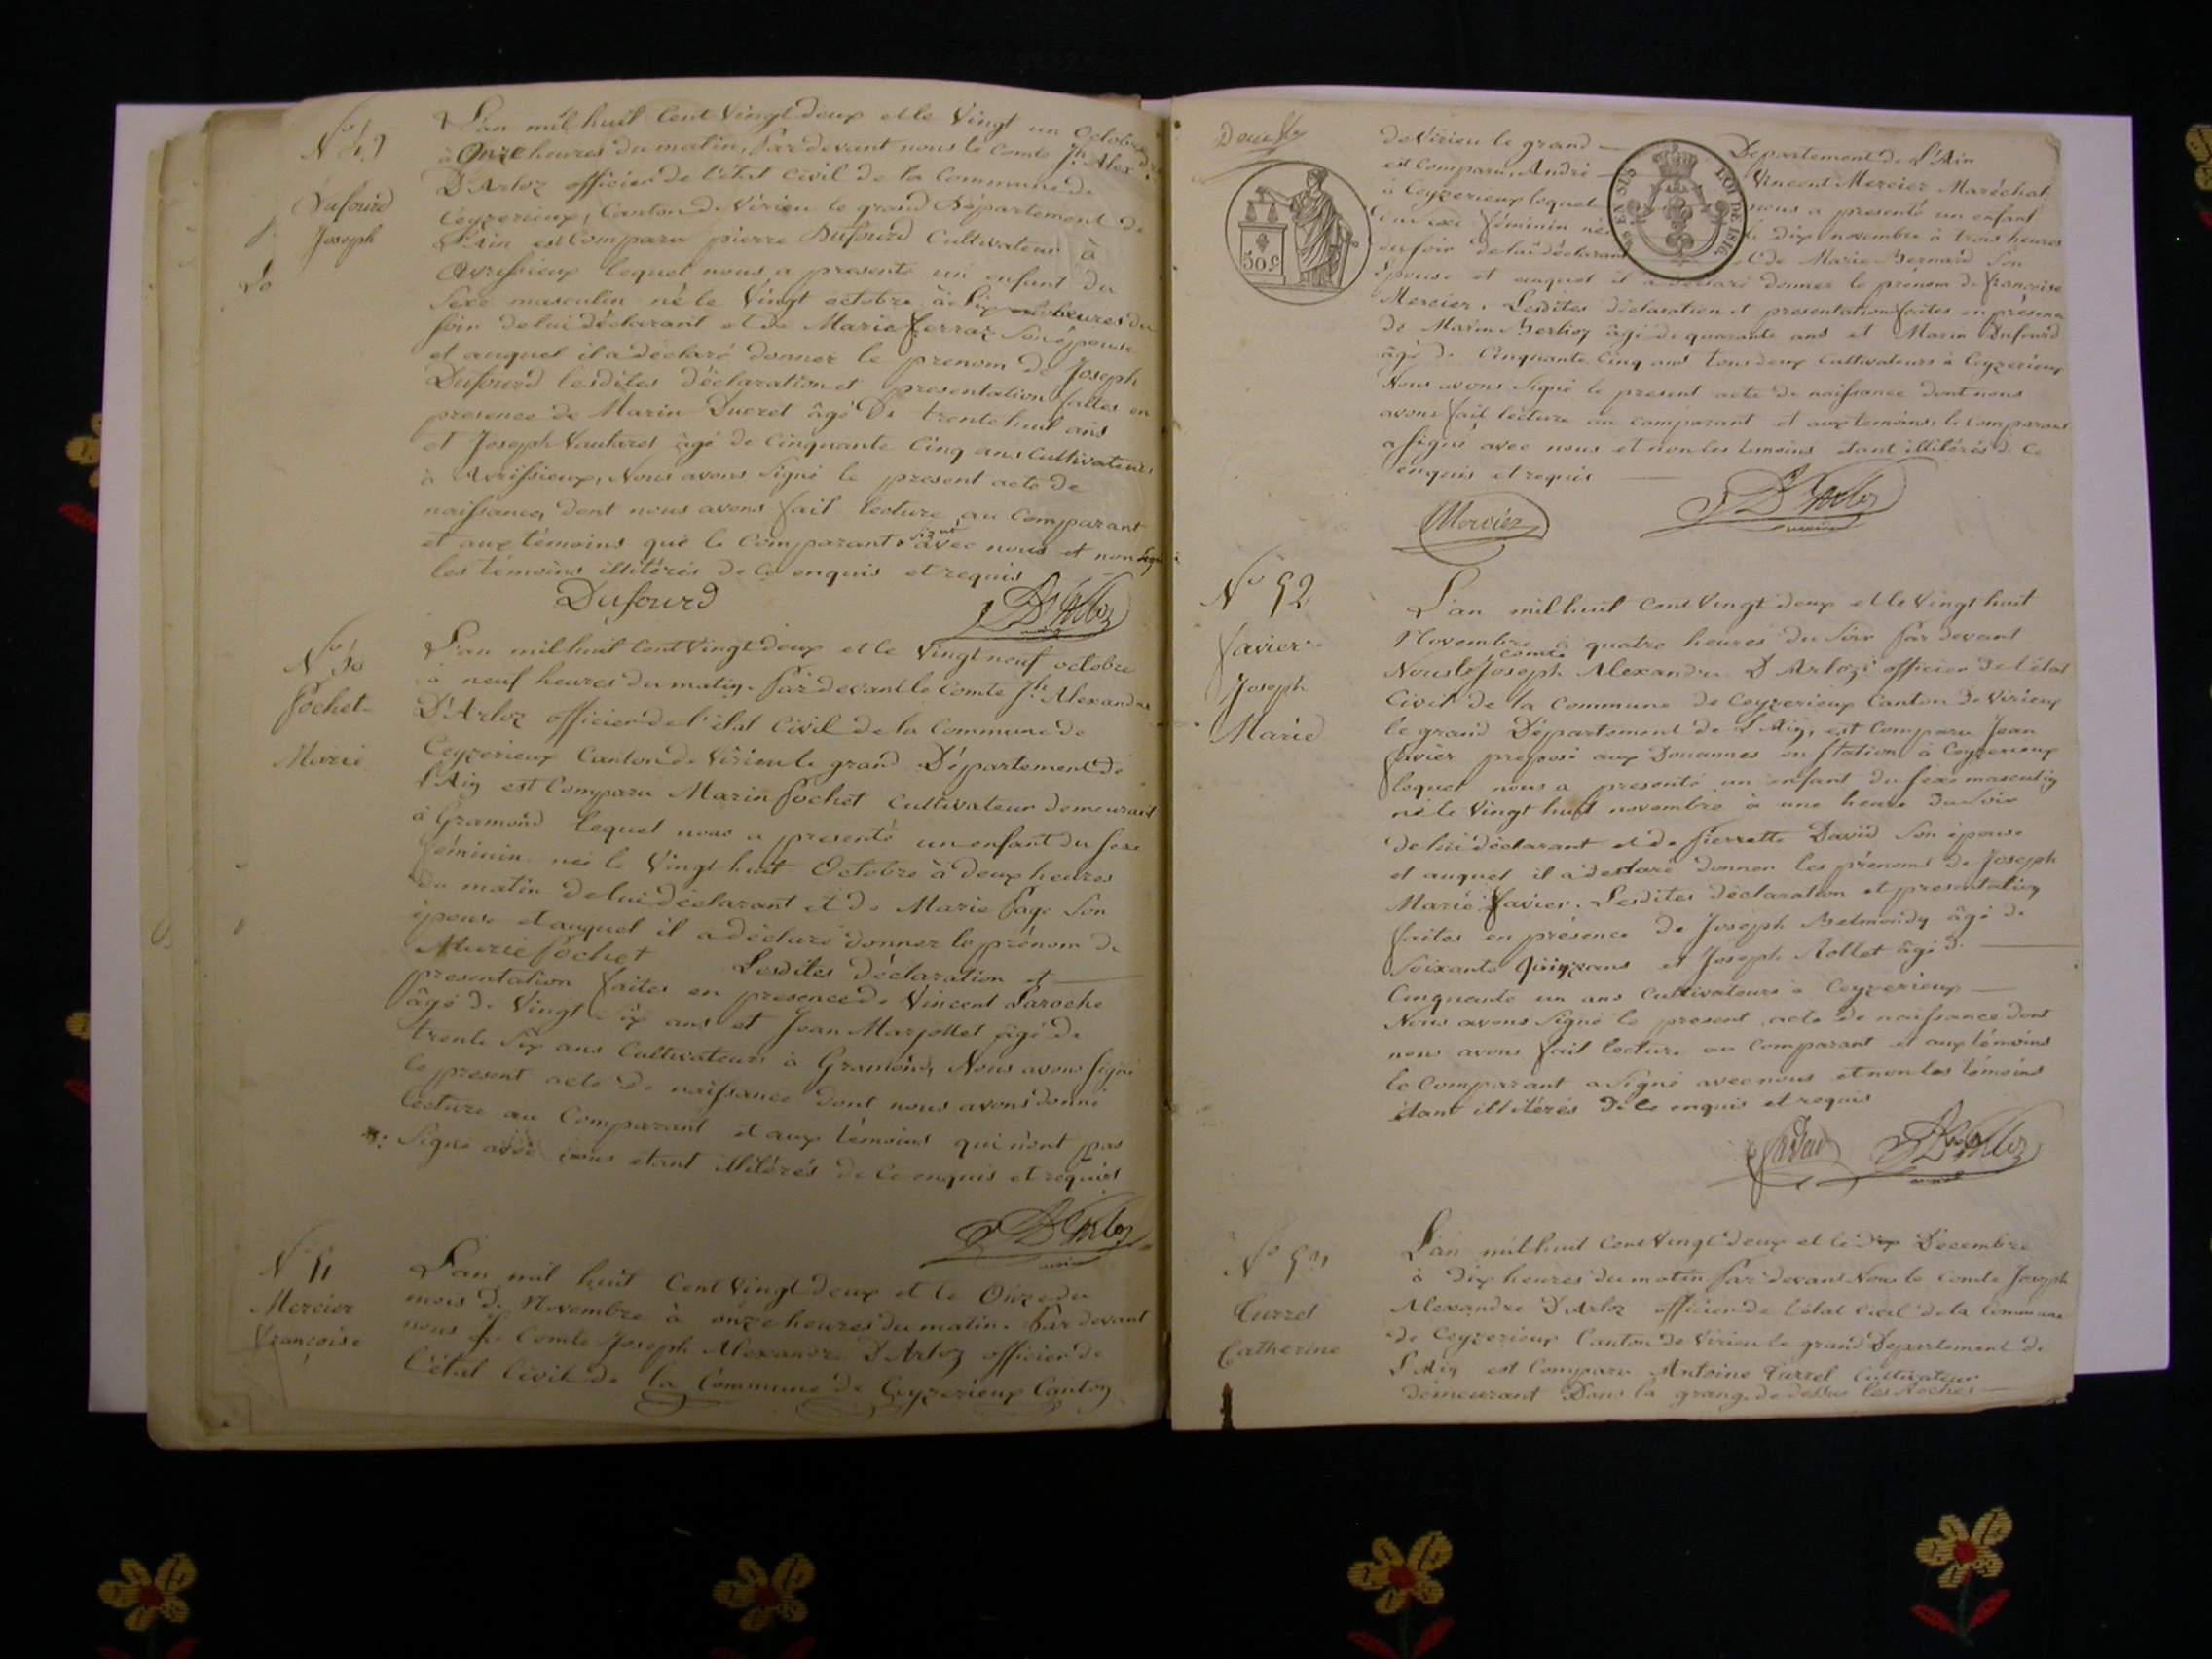 N° 49
Dufourd
Joseph
L'an mil huit Cent Vingt deux et le Vingt un Octobre
à Onze heures du matin, Par devant nous le Comte Jh Alex
D'Arloz officier de l'état Civil de la Commune de
Ceyzerieux, Canton de Virieu le grand Département de
L'Ain est Comparu pierre Dufourd Cultivateur à
Avrissieux lequel nous a presenté un enfant du
Sexe masculin né le Vingt octobre à Six heures du
soir de lui déclarant et de Marie ferraz son épouse
et auquel il a déclaré donner le prenom de Joseph
Dufourd lesdites déclaration et presentation faites en
presence de Marin Ducret âgé De trente huit ans
et Joseph Vautaret âgé de Cinquante Cinq ans Cultivateurs
à Avrissieux, Nous avons Signé le present acte de
naissance, dont nous avons fait lecture au Comparant
et aux témoins que le Comparant a signé avec nous et non
les témoins illitérés de Ce enquis et requis
Dufourd
D'Arloz
N° 50
Pochet
Marie
L'an mil huit Cent Vingt deux et le Vingt neuf octobre
à neuf heures du matin. Par devant le Comte Jh Alexandre
D'Arloz officier de l'état Civil de la Commune de
Ceyzerieux Canton de Virieu le grand Département de
l'Ain est Comparu Marin Pochet Cultivateur demeurant
à Gramond lequel nous a presenté un enfant du sexe
féminin né le Vingt huit Octobre à deux heures
du matin de lui déclarant et de Marie Page Son
épouse et auquel il a déclaré donner le prénom de
Marie Pochet Lesdites déclaration et
presentation faites en presence de Vincent Laroche
âgé de Vingt Six ans et Jean Marjollet âgé de
trente Six ans Cultivateurs à Gramond, Nous avons signé
le present acte de naissance dont nous avons donné
lecture au Comparant et aux témoins qui n'ont pas
Signé avec nous etant illitérés de Ce enquis et requis
D'Arloz
N° 51
Mercier
Françoise
L'an mil huit Cent Vingt deux et le Onze du
mois de Novembre à onze heures du matin. Par devant
nous Le Comte Joseph Alexandre D'Arloz officier de
l'état Civil de la Commune de Ceyzerieux Canton
de Virieu le grand Département de L'Ain
est Comparu, André Vincent Mercier Maréchal
à Ceyzerieux lequel nous a presenté un enfant
féminin né dix novembre à trois heures
du soir de lui déclarant de Marie Bernard Son
Epouse et auquel il a déclaré donner le prénom de Françoise
Mercier. Lesdites déclaration et presentation faites en présence
de Marin Berlioz âgé de quarante ans et Marin Dufourd
âgé de Cinquante Cinq ans tous deux Cultivateurs à Ceyzerieux
Nous avons Signé le present acte de naissance dont nous
avons fait lecture au comparant et aux temoins le Comparant
a signé avec nous et non les temoins etant illitérés de Ce
enquis et requis
EN SUS
LOI DE 1816
50 c
Mercier
D'Arloz
N° 52
Favier
Joseph
Marie
L'an mil huit Cent Vingt deux et le Vingt huit
Novembre à quatre heures du Soir Par devant
Nous le Comte Joseph Alexandre D'Arloz officier de l'état
Civil de la Commune de Ceyzerieux Canton de Virieux
le grand Département de L'Ain, est Comparu Jean
Favier préposé aux Douannes en Station à Ceyzerieux
lequel nous a presenté un enfant du sexe masculin
né le Vingt huit novembre à une heure du Soir
de lui déclarant et de Pierrette David Son épouse
et auquel il a déclaré donner les prénoms de Joseph
Marie Favier. Lesdites déclaration et presentation
faites en présence de Joseph Belmondy âgé de
Soixante quinze ans et Joseph Rollet âgé de
Cinquante un ans Cultivateurs à Ceyzerieux
Nous avons Signé le present acte de naissance dont
nous avons fait lecture au Comparant et aux témoins
le Comparant a Signé avec nous et non les témoins
étant illitérés de Ce enquis et requis
D'Arloz
Turrel
Catherine
L'an mil huit Cent Vingt deux et le dix Décembre
à dix heures du matin Par devant Nous le Comte Joseph
Alexandre D'Arloz officier de l'état Civil de la Commune
de Ceyzerieux Canton de Virieu le grand Département de
L'Ain est Comparu Antoine Turrel Cultivateur
demeurant Dans la grange de dessus les Roches